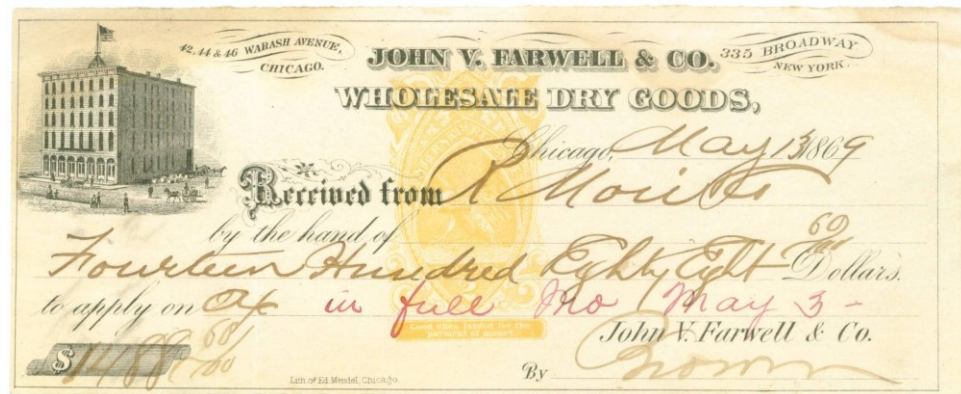 42, 44 & 46 WABASH AVENUE,
CHICAGO.
JOHN V. FARWELL & CO.
335 BROADWAY
NEW YORK.
WHOLESALE DRY GOODS,
Chicago, May 13 1869
Received from R
by the hand of
60
Fourteen Hundred Eighty Eight 100 Dollars.
to apply on in full May 3-
Good when issued for the
payment of money
John V. Farwell & Co.
$ 1488
Lith. of Ed. Mendel, Chicago.
By Brown